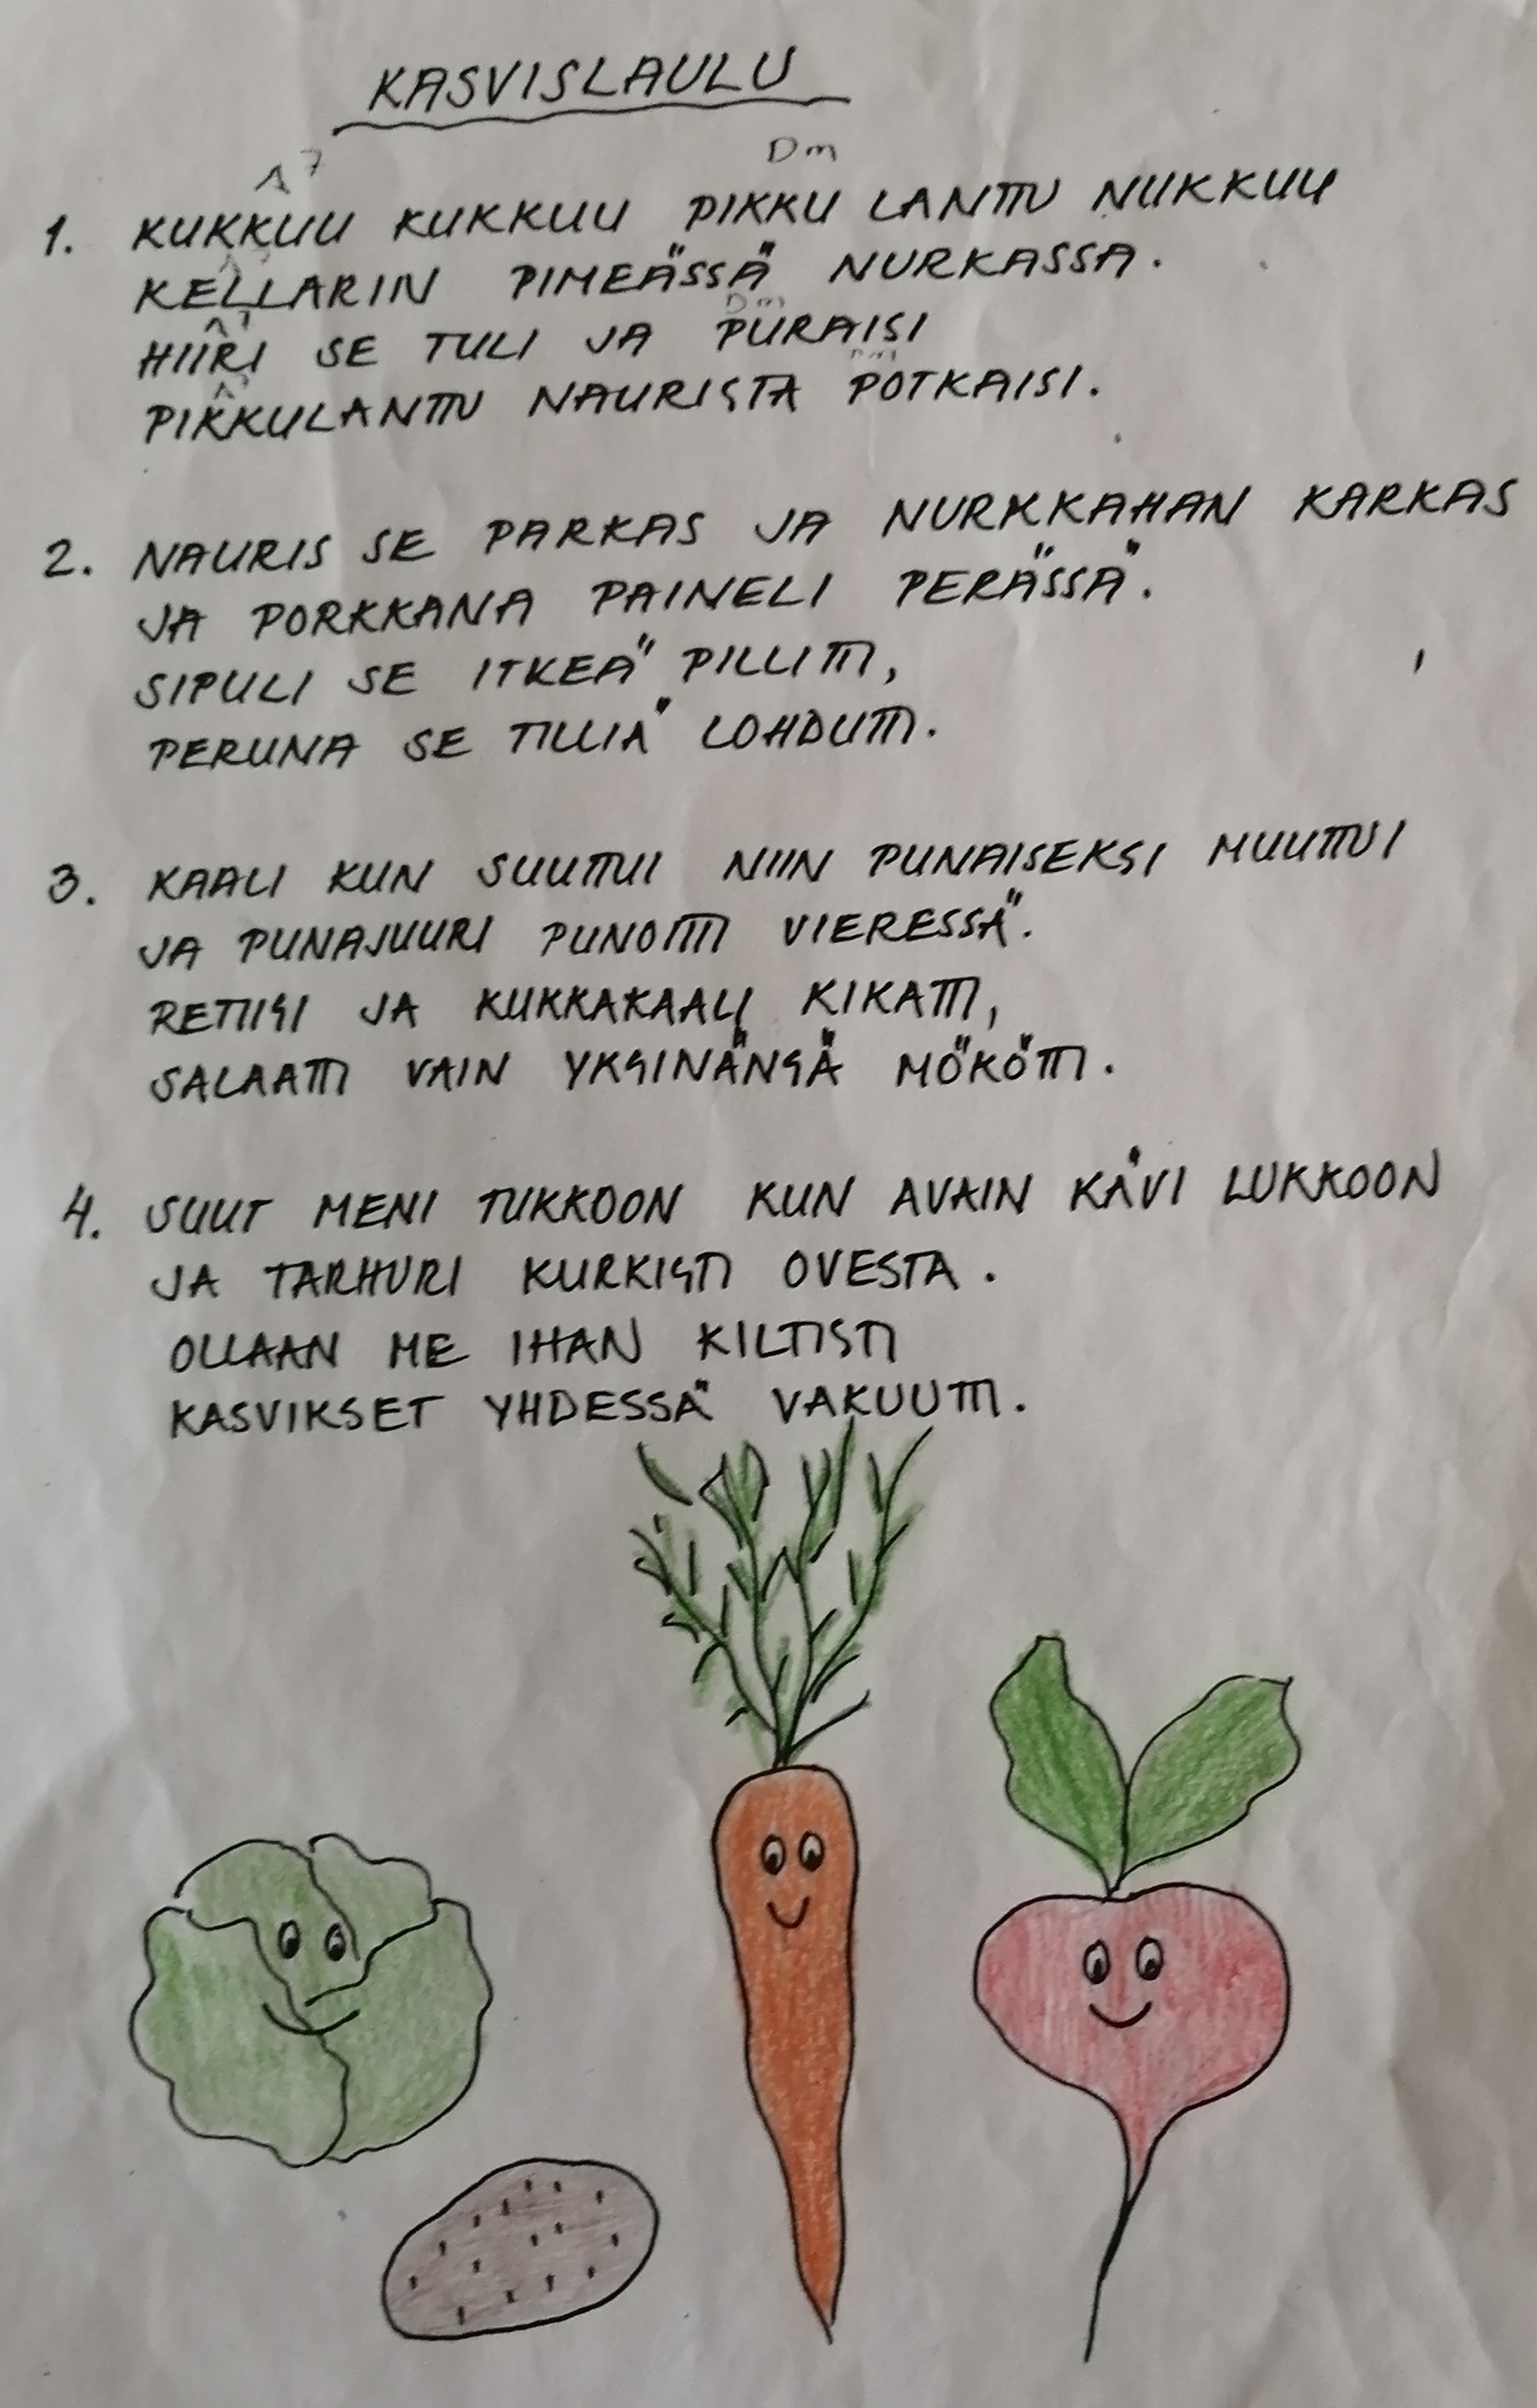 KASVISLAULU
A7 Dm
1. KUKKUU KUKKUU PIKKU LANTTU NUKKUU
KELLARIN PIMEÄSSÄ NURKASSA.
A7 Dm
HIIRI SE TULI JA PURAISI
A7 Dm
PIKKULANTTU NAURISTA POTKAISI.
2. NAURIS SE PARKAS JA NURKKAHAN KARKAS
JA PORKKANA PAINELI PERÄSSÄ.
SIPULI SE ITKEÄ PILLITTI,
PERUNA SE TILLIÄ LOHDUTTI.
3. KAALI KUN SUUTTUI NIIN PUNAISEKSI MUUTTUI
JA PUNAJUURI PUNOITTI VIERESSÄ.
RETIISI JA KUKKAKAALI KIKATTI,
SALAATTI VAIN YKSINÄNSÄ MÖKÖTTI.
4. SUUT MENI TUKKOON KUN AVAIN KÄVI LUKKOON
JA TARHURI KURKISTI OVESTA.
OLLAAN ME IHAN KILTISTI
KASVIKSET YHDESSÄ VAKUUTTI.